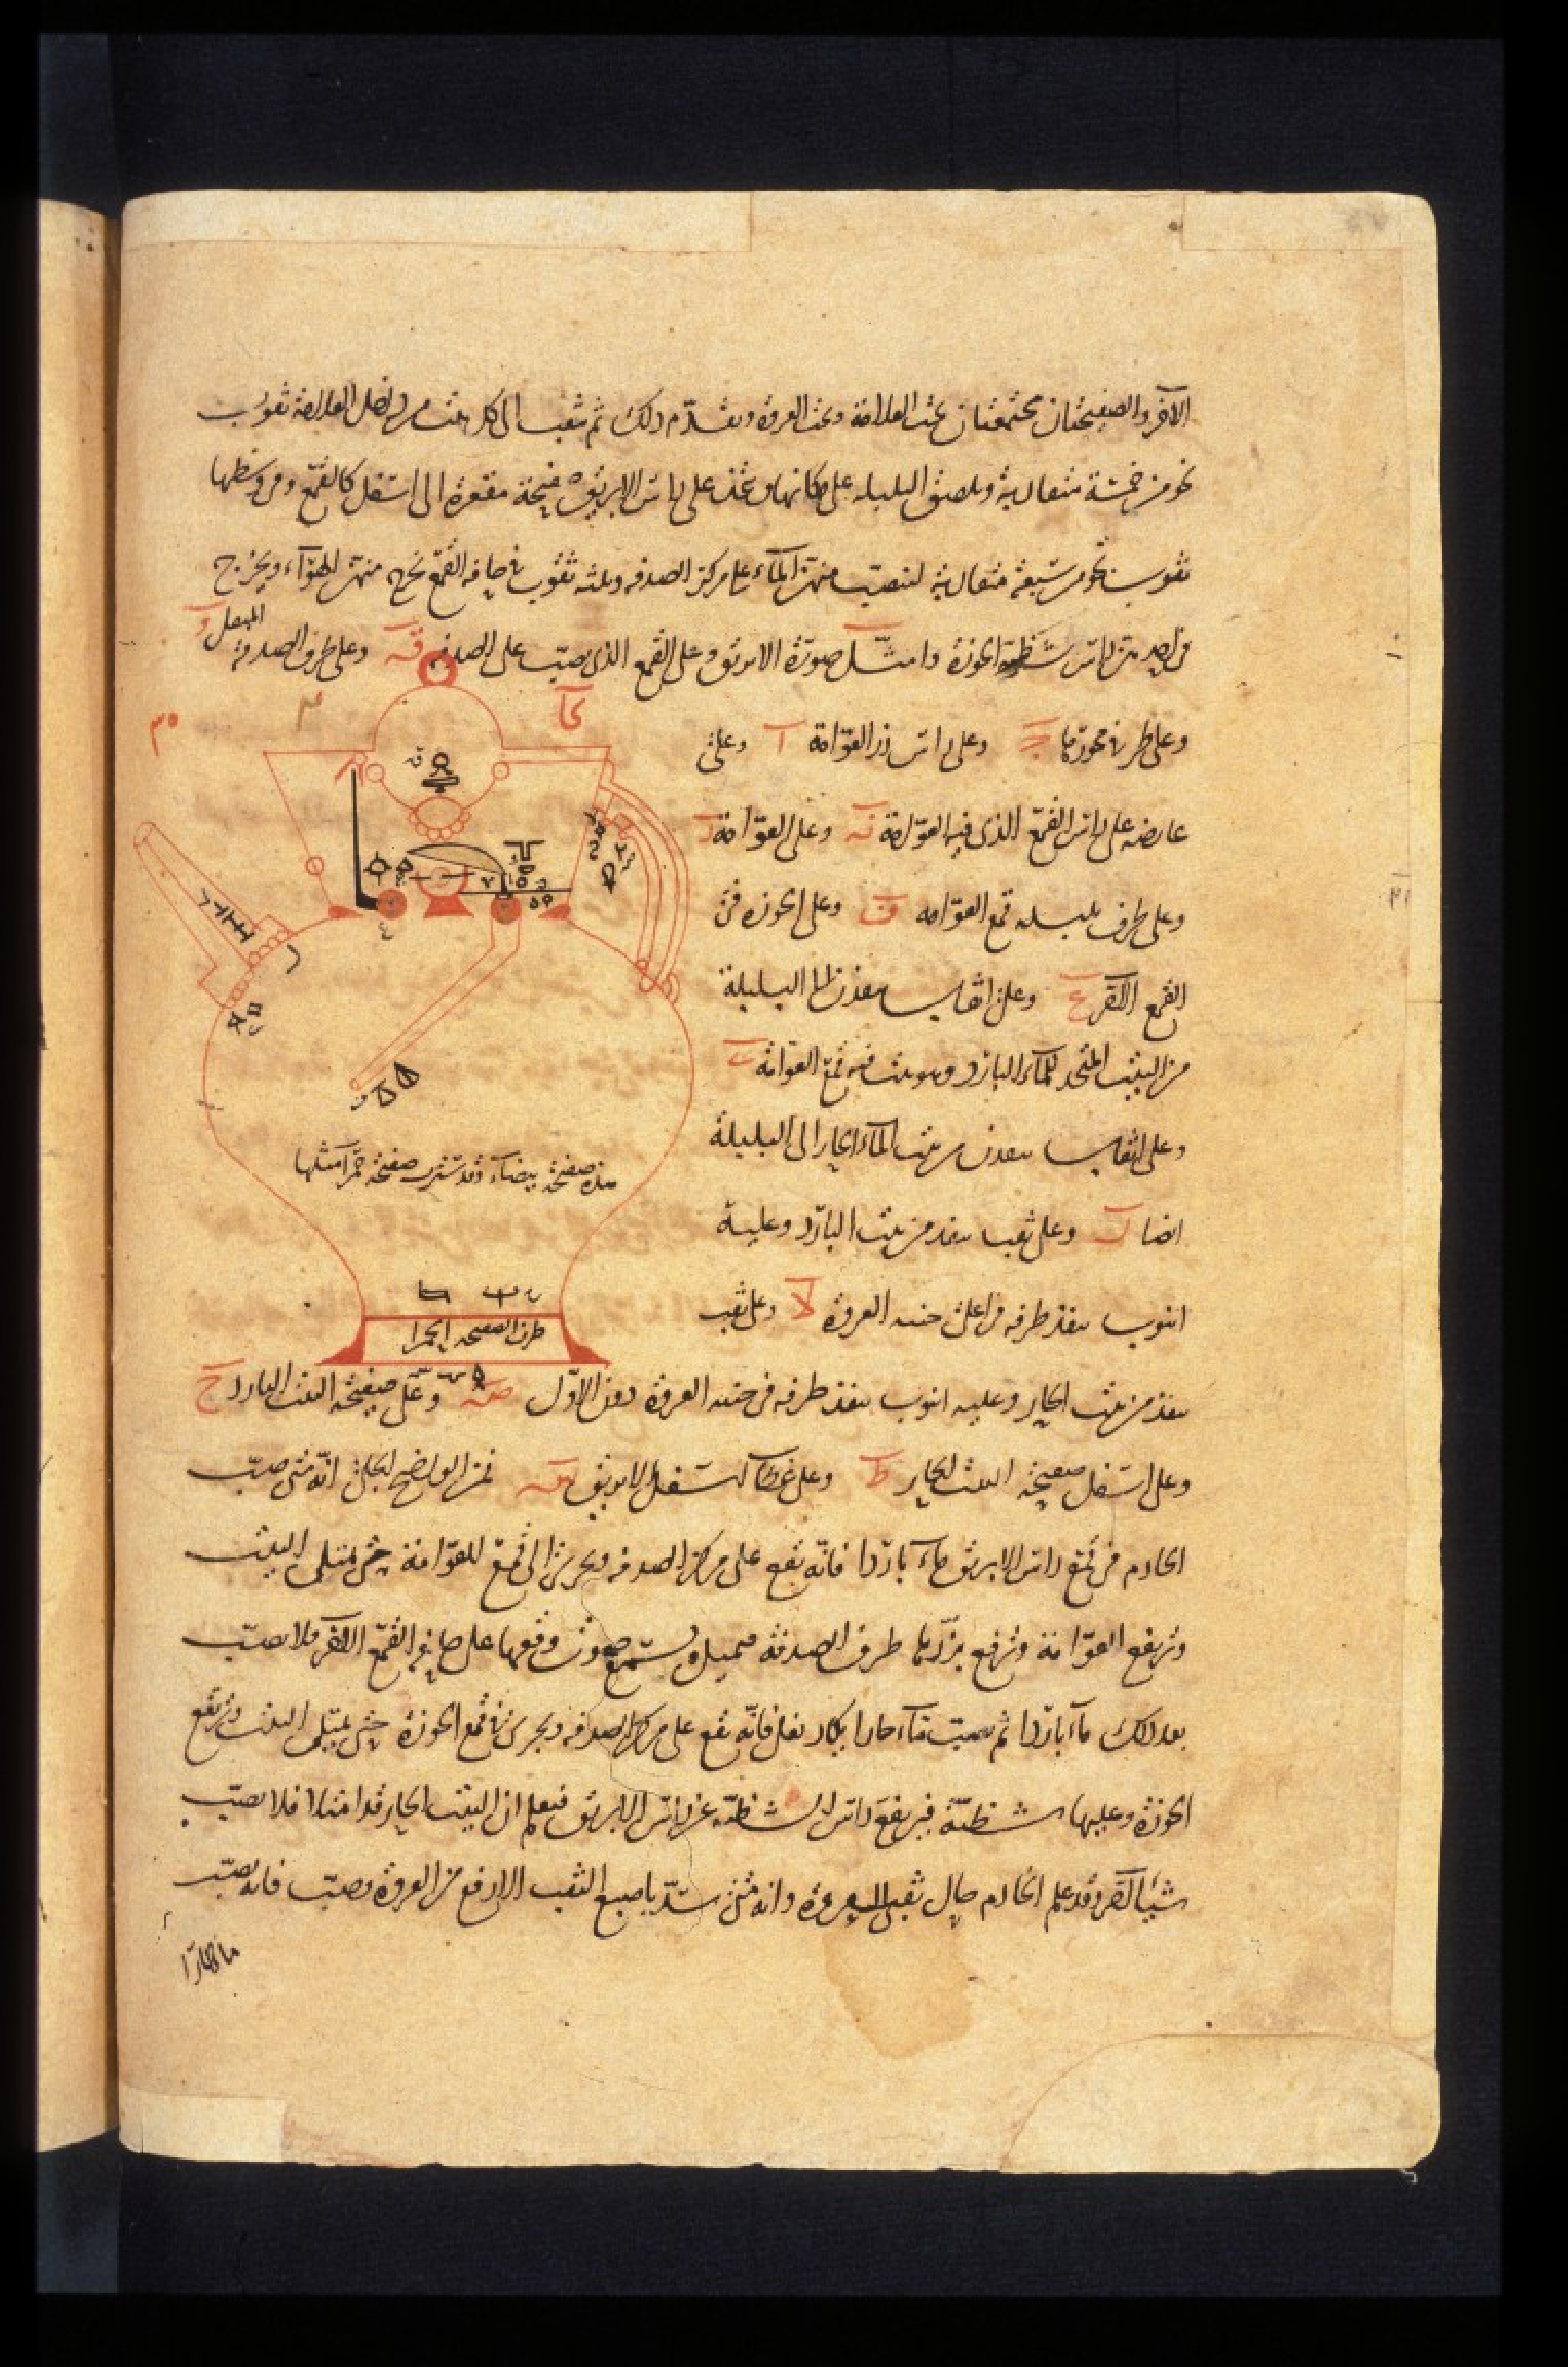 الآخر والصفيحتان مجتمعتان تحت العلامة وتحت العروة وتقدم ذلك ثم ثقب الى كل بيت من داخل ثقوب
نحو من خمسة متقاربة ويلصق البلبلة على مكانها ويتخذ على راس الابريق صفيحة مقعرة الى اسفل كالقمع وفي وسطها
ثقوب نحو من سبعة متقاربة لينصب منهن الماء على مركز الصدفه وثلثه ثقوب في حافة القمع يخرج منهن الهواء ويخرج
من احديهن راس شظية الجوزة وامثل صورة الابريق وعلى القمع الذي يصب على الصدفه ق وعلى طرف الصدفة الميل و
وعلى طرفي محورها ج وعلى راس زر العوامة ا وعلى
عارضه على راس القمع الذي فيه العوامة ن وعلى العوامة د
وعلى طرف بلبلة قمع العوامه ف وعلى الجوزه في
القمع الآخر ع وعلى اثقاب ينفذن الى البلبلة
من البيت المتخذ للماء البارد وهو بيت فيه قمع العوامة
وعلى اثقاب ينفذن من بيت الماء الحار الى البلبلة
ايضا ل وعلى ثقب ينفذ من بيت البارد وعليه
انبوب ينفذ طرفه في اعلى حنيه العروة لا وعلى ثقب
ينفذ من بيت الحار وعليه انبوب ينفذ طرفه في حنيه العروة دون الاول ص وعلى صفيحة البيت البارد ح
وعلى اسفل صفيحة البيت الحار ط وعلى غطاء اسفل الابريق فمن الواضح الجلي انه متى صب
الخادم في قمع راس الابريق ماء باردا فانه يقع على مركز الصدفه ويجري الى قمع العوامة حتى يمتلى البيت
وترتفع العوامة وترفع بزرها طرف الصدفة فيميل ويسمع صوت وقعها على حافة القمع الآخر فلا يصب
بعد ذلك ماء باردا ثم يصب ماء حارا يكاد يغلي فانه يقع على مركز الصدفه ويجري في قمع الجوزة حتى يمتلى البيت وترتفع
الجوزة وعليها شظية فيرتفع راس الشظية عن راس الابريق فيعلم ان البيت الحار قد امتلا فلا يصب
شيئا آخر وقد علم الخادم حال ثقبي العروة وانه متى سد باصبع الثقب الارفع من العروة وصب فانه يصب
ماء حارا
كا
هذه صفيحة بيضاء وقد سترت صفيحة حمرا مثلها
طرف الصفيحه الحمرا